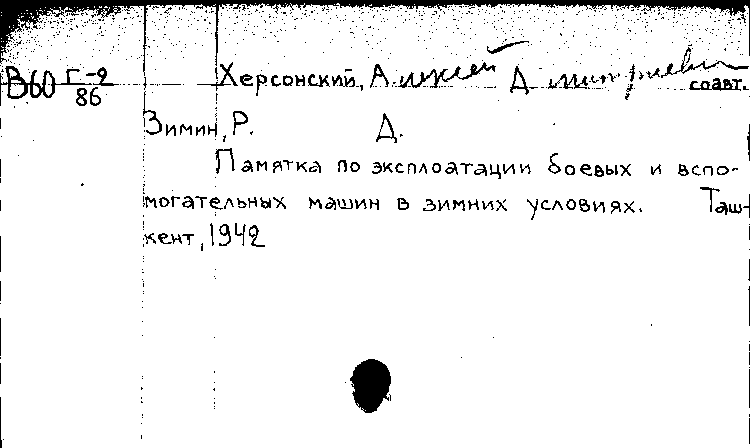 В60 Г-2/86 Херсонский, Алексей Дмитриевич
соавт.
Зимин, Р. Д.
Памятка по эксплоатации боевых и вспо-
могательных машин в зимних условиях. Таш-
кент, 1942